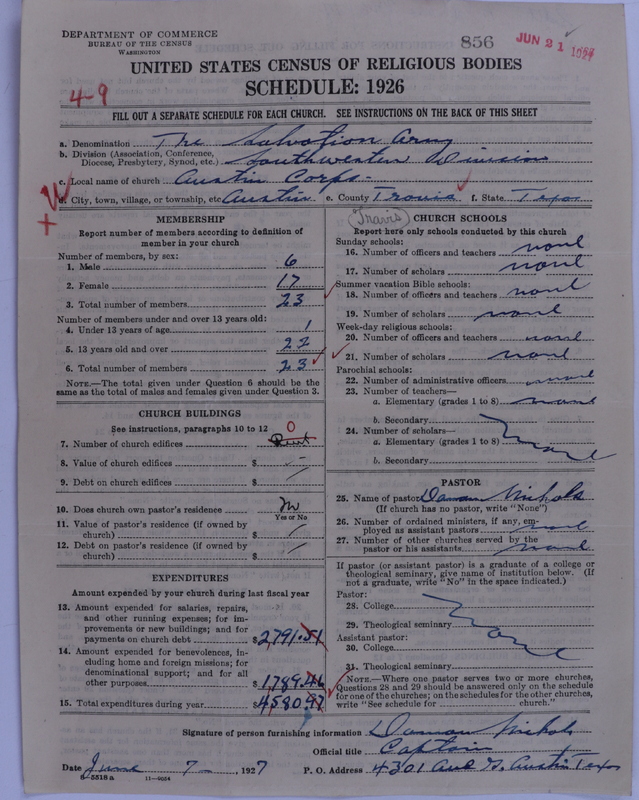 DEPARTMENT OF COMMERCE
BUREAU OF THE CENSUS
WASHINGTON
856
JUN 21 1927
UNITED STATES CENSUS OF RELIGIOUS BODIES
SCHEDULE: 1926
4-9
FILL OUT A SEPARATE SCHEDULE FOR EACH CHURCH. SEE INSTRUCTIONS ON THE BACK OF THIS SHEET
a. Denomination The Salvation Army
b. Division (Association, Conference, Diocese, Presbytery, Synod, etc.) Southwestern Division
c. Local name of church Austin Corps-
d. City, town, village, or township, etc. Austin e. County Travis f. State Texas
(Travis)
MEMBERSHIP
Report number of members according to definition of
member in your church
Number of members, by sex:
1. Male 6
2. Female 17
3. Total number of members 23
Number of members under and over 13 years old:
4. Under 13 years of age 1
5. 13 years old and over 22
6. Total number of members 23
NOTE.—The total given under Question 6 should be
same as the total of males and females given under Question 3.
CHURCH BUILDINGS
See instructions, paragraphs 10 to 12 0
7. Number of church edifices Rent
8. Value of church edifices $ -
9. Debt on church edifices $
10. Does church own pastor's residence No
Yes or No
11. Value of pastor's residence (if owned by
church) $
12. Debt on pastor's residence (if owned by
church) $
EXPENDITURES
Amount expended by your church during last fiscal year
13. Amount expended for salaries, repairs,
and other running expenses; for im-
provements or new buildings; and for
payments on church debt $2,791.51
14. Amount expended for benevolences, in-
cluding home and foreign missions; for
denominational support; and for all
other purposes 1,789.46
15. Total expenditures during year $4580.97
CHURCH SCHOOLS
Report here only schools conducted by this church
Sunday schools:
16. Number of officers and teachers none
17. Number of scholars none
Summer vacation Bible schools:
18. Number of officers and teachers none
19. Number of scholars none
Week-day religious schools:
20. Number of officers and teachers none
21. Number of scholars none
Parochial schools:
22. Number of administrative officers none
23. Number of teachers—
a. Elementary (grades 1 to 8) none
b. Secondary
24. Number of scholars—
a. Elementary (grades 1 to 8) none
b. Secondary
PASTOR
25. Name of pastor Damon Nichols
(If church has no pastor, write "None")
26. Number of ordained ministers, if any, em-
ployed as assistant pastors none
27. Number of other churches served by the
pastor or his assistants none
If pastor (or assistant pastor) is a graduate of a college or
theological seminary, give name of institution below. (If
not a graduate, write "No" in the space indicated.)
Pastor:
28. College
29. Theological seminary None
Assistant pastor:
30. College
31. Theological seminary
NOTE.—Where one pastor serves two or more churches,
Questions 28 and 29 should be answered only on the schedule
for one of the churches; on the schedules for the other churches,
write "See schedule for church."
Signature of person furnishing information Damon Nichols
Official title Captain
Date June 7-, 1927 P. O. Address 4301 Ave G. Austin Texas
8-5518a 11-9054